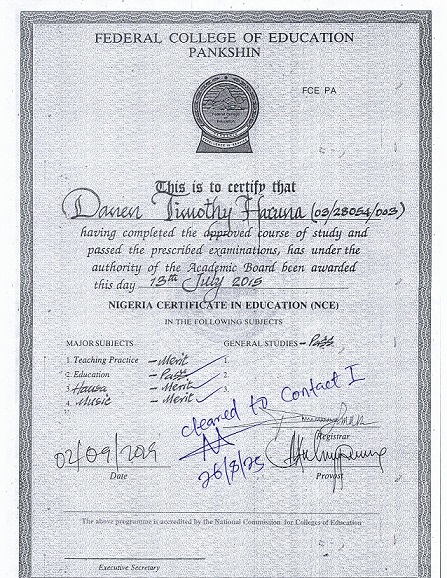 FEDERAL COLLEGE OF EDUCATION
PANKSHIN
FCE PA
This is to certify that
Timothy Haruna (03/28054/003)
having completed the approved course of study and
passed the prescribed examinations, has under the
authority of the Academic Board been awarded
this day 13th July 2015
NIGERIA CERTIFICATE IN EDUCATION (NCE)
IN THE FOLLOWING SUBJECTS
MAJOR SUBJECTS GENERAL STUDIES - Pass
1. Teaching Practice - Merit 1.
2. Education - Pass 2.
3. Hausa - Merit 3.
4. Music - Merit
cleared to Contact I
26/8/25
Registrar
02/09/2019
Date Provost
The above programme is accredited by the National Commission for Colleges of Education
Executive Secretary